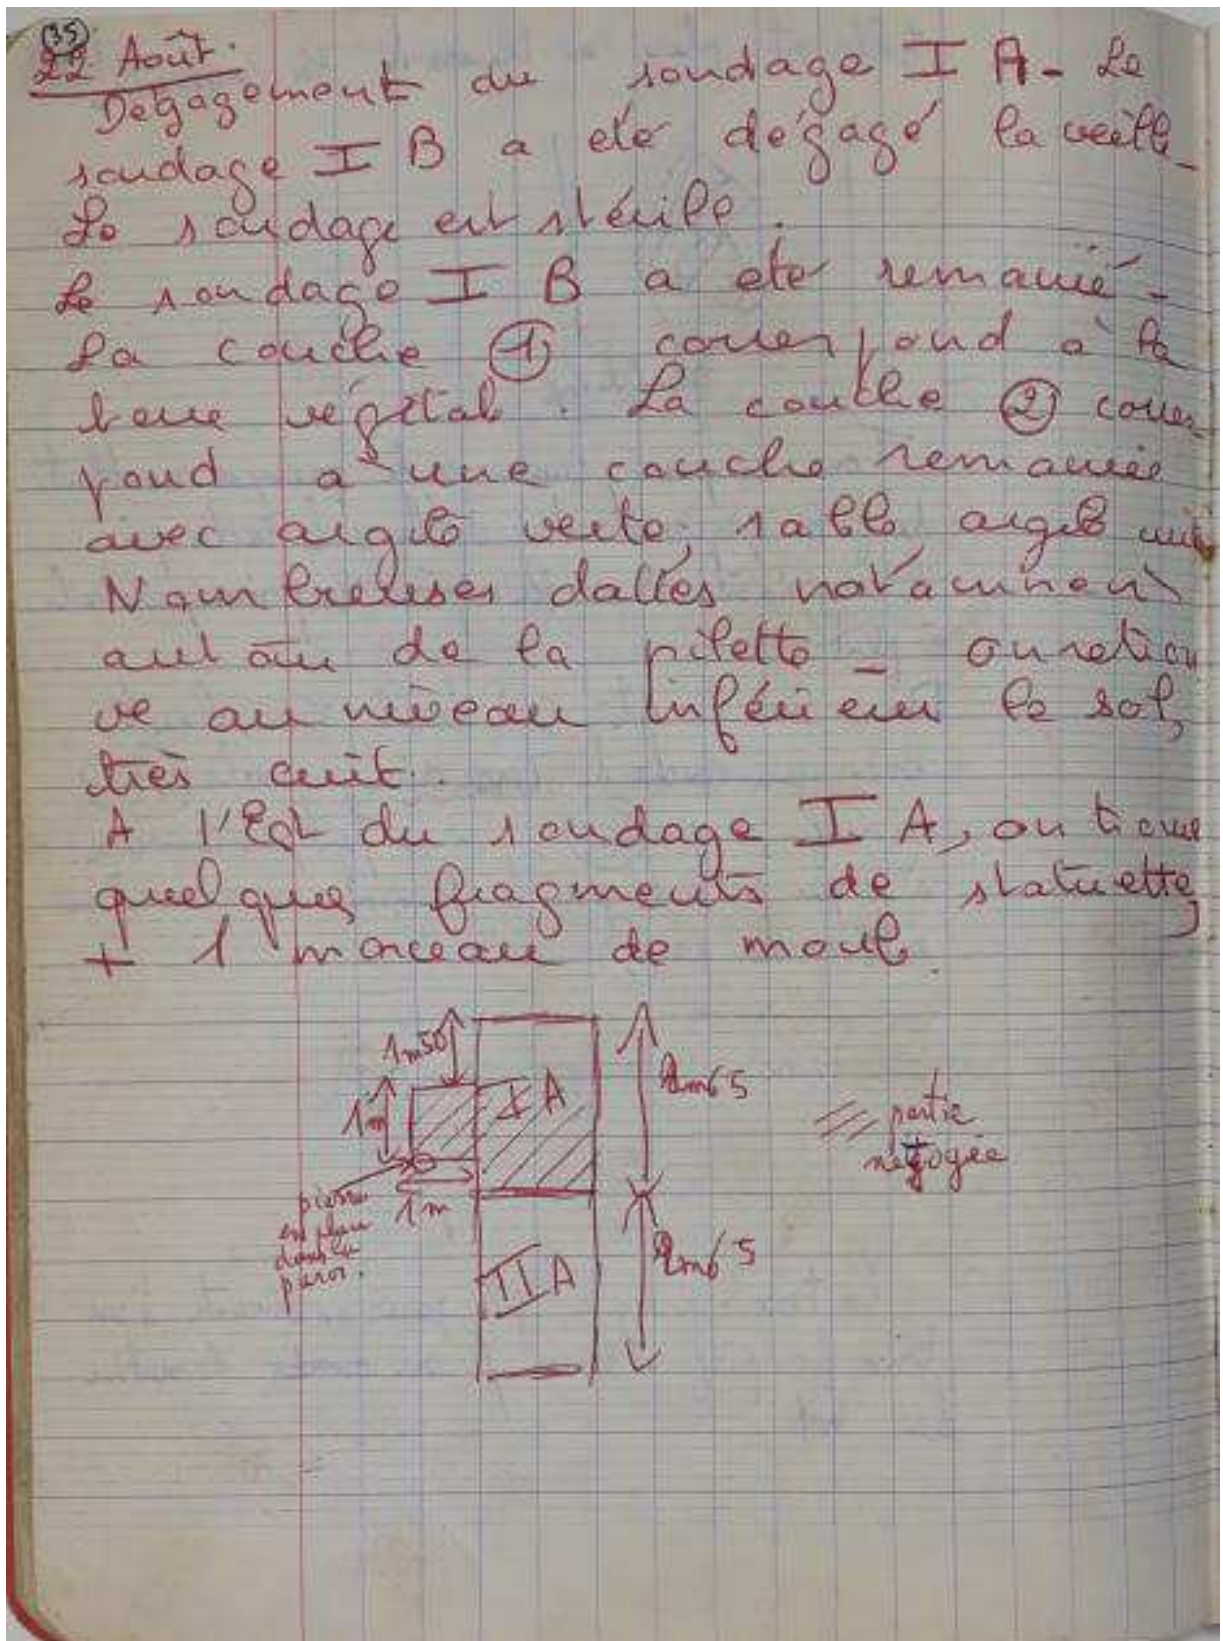 35
22 Août.
Dégagement du sondage I A - Le
sondage I B a été dégagé la veille -
Le sondage est stérile.
Le sondage I B a été remanié -
La couche ① correspond à la
terre végétal. La couche ② corres
pond à une couche remaniée
avec argile verte, sable argile cuite
Nombreuses dalles notamment
autour de la pilette - on retrou
ve au niveau inférieur le sol,
très cuit.
A l'Est du sondage I A, on trouve
quelques fragments de statuettes
+ 1 morceau de moule.
1m50
I A
1m
1m
2m65
partie
pierre
en place
dans la
paroi.
II A
2m65